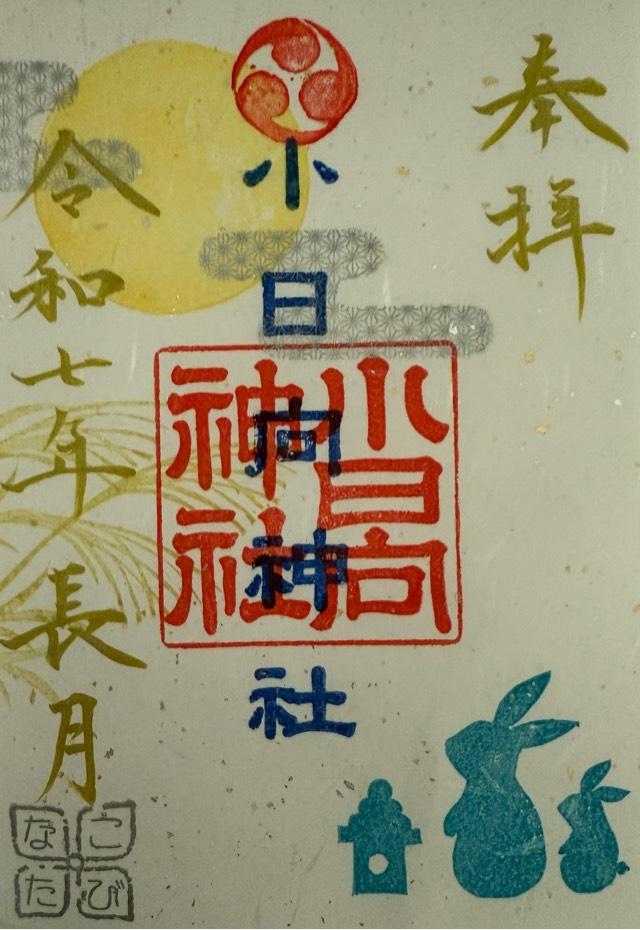 奉拝
小日向神社
小日向
神社
令和七年長月
こび
なた